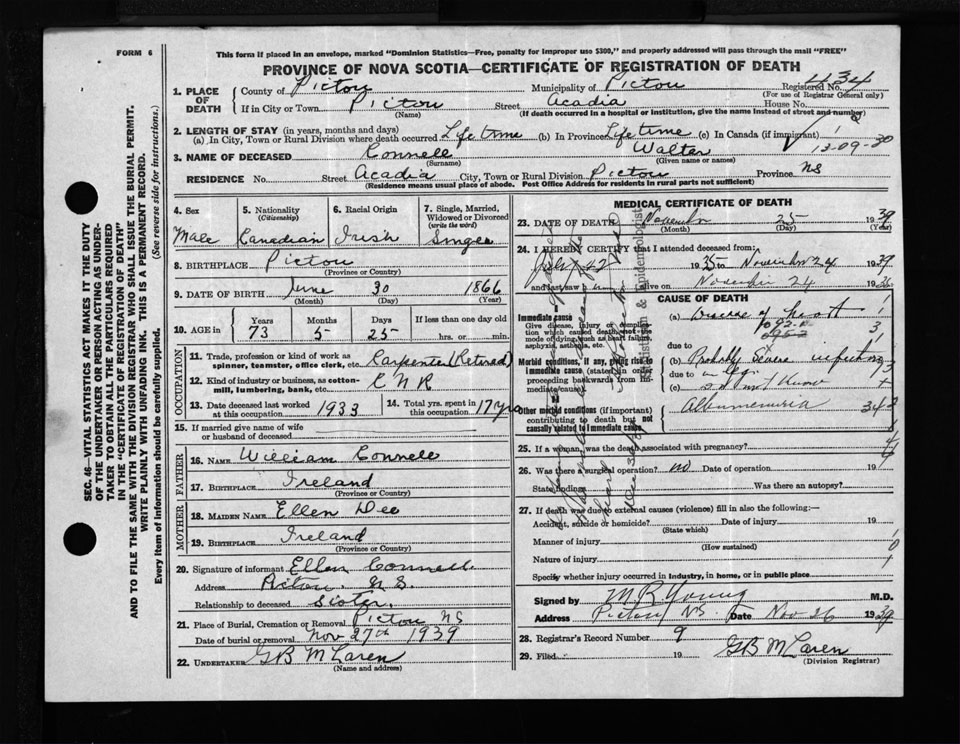 FORM 6
This form if placed in an envelope, marked "Dominion Statistics—Free, penalty for improper use $300," and properly addressed will pass through the mail "FREE"
PROVINCE OF NOVA SCOTIA—CERTIFICATE OF REGISTRATION OF DEATH
1. PLACE OF DEATH
County of Pictou Municipality of Pictou Registered No. 434
(For use of Registrar General only)
If in City or Town Pictou Street Acadia House No.
(Name) (If death occurred in a hospital or institution, give the name instead of street and number)
2. LENGTH OF STAY (in years, months and days)
(a) In City, Town or Rural Division where death occurred Life time (b) In Province Life time (c) In Canada (if immigrant)
13-09-30
3. NAME OF DECEASED Connell Walter
(Surname) (Given name or names)
RESIDENCE No. Street Acadia City, Town or Rural Division Pictou Province NS
(Residence means usual place of abode. Post Office Address for residents in rural parts not sufficient)
4. Sex Male
5. Nationality (Citizenship) Canadian
6. Racial Origin Irish
7. Single, Married, Widowed or Divorced (write the word) Single
8. BIRTHPLACE Pictou
(Province or Country)
9. DATE OF BIRTH June 30 1866
(Month) (Day) (Year)
10. AGE in Years 73 Months 5 Days 25 If less than one day old hrs. or min.
OCCUPATION
11. Trade, profession or kind of work as spinner, teamster, office clerk, etc. Karpenter (Retired)
12. Kind of industry or business, as cotton-mill, lumbering, bank, etc. C N R
13. Date deceased last worked at this occupation 1933
14. Total yrs. spent in this occupation 17 yrs
15. If married give name of wife or husband of deceased
FATHER
16. Name William Connell
17. Birthplace Ireland
(Province or Country)
MOTHER
18. Maiden Name Ellen Dee
19. Birthplace Ireland
(Province or Country)
20. Signature of informant Ellen Connell
Address Pictou. N S.
Relationship to deceased Sister
21. Place of Burial, Cremation or Removal Pictou NS
Date of burial or removal Nov 27th 1939
22. Undertaker GB McLaren
(Name and address)
MEDICAL CERTIFICATE OF DEATH
23. DATE OF DEATH November 25 1939
(Month) (Day) (Year)
24. I HEREBY CERTIFY that I attended deceased from:
July 1935 to November 24 1939
and last saw h alive on November 24 19
CAUSE OF DEATH
Immediate cause
Give disease, injury or complication which caused death, not the mode of dying, such as heart failure, asphyxia, asthenia, etc.
(a) Disease of heart
due to
Morbid conditions, if any, giving rise to immediate cause (stated in order proceeding backwards from immediate cause).
(b) Probably severe infection
due to
(c) do not know
Other morbid conditions (if important) contributing to death but not causally related to immediate cause.
Albumenuria
25. If a woman, was the death associated with pregnancy?
26. Was there a surgical operation? no Date of operation 19
State findings Was there an autopsy?
27. If death was due to external causes (violence) fill in also the following:—
Accident, suicide or homicide? Date of injury 19
(State which)
Manner of injury
(How sustained)
Nature of injury
Specify whether injury occurred in industry, in home, or in public place
Signed by M R Young M.D.
Address Pictou NS. Date Nov 26 1939
28. Registrar's Record Number 9
29. Filed 19 GB McLaren
(Division Registrar)
SEC. 46—VITAL STATISTICS ACT MAKES IT THE DUTY OF THE UNDERTAKER OR PERSON ACTING AS UNDERTAKER TO OBTAIN ALL THE PARTICULARS REQUIRED IN THE "CERTIFICATE OF REGISTRATION OF DEATH"
AND TO FILE THE SAME WITH THE DIVISION REGISTRAR WHO SHALL ISSUE THE BURIAL PERMIT.
WRITE PLAINLY WITH UNFADING INK. THIS IS A PERMANENT RECORD.
Every item of information should be carefully supplied. (See reverse side for instructions.)